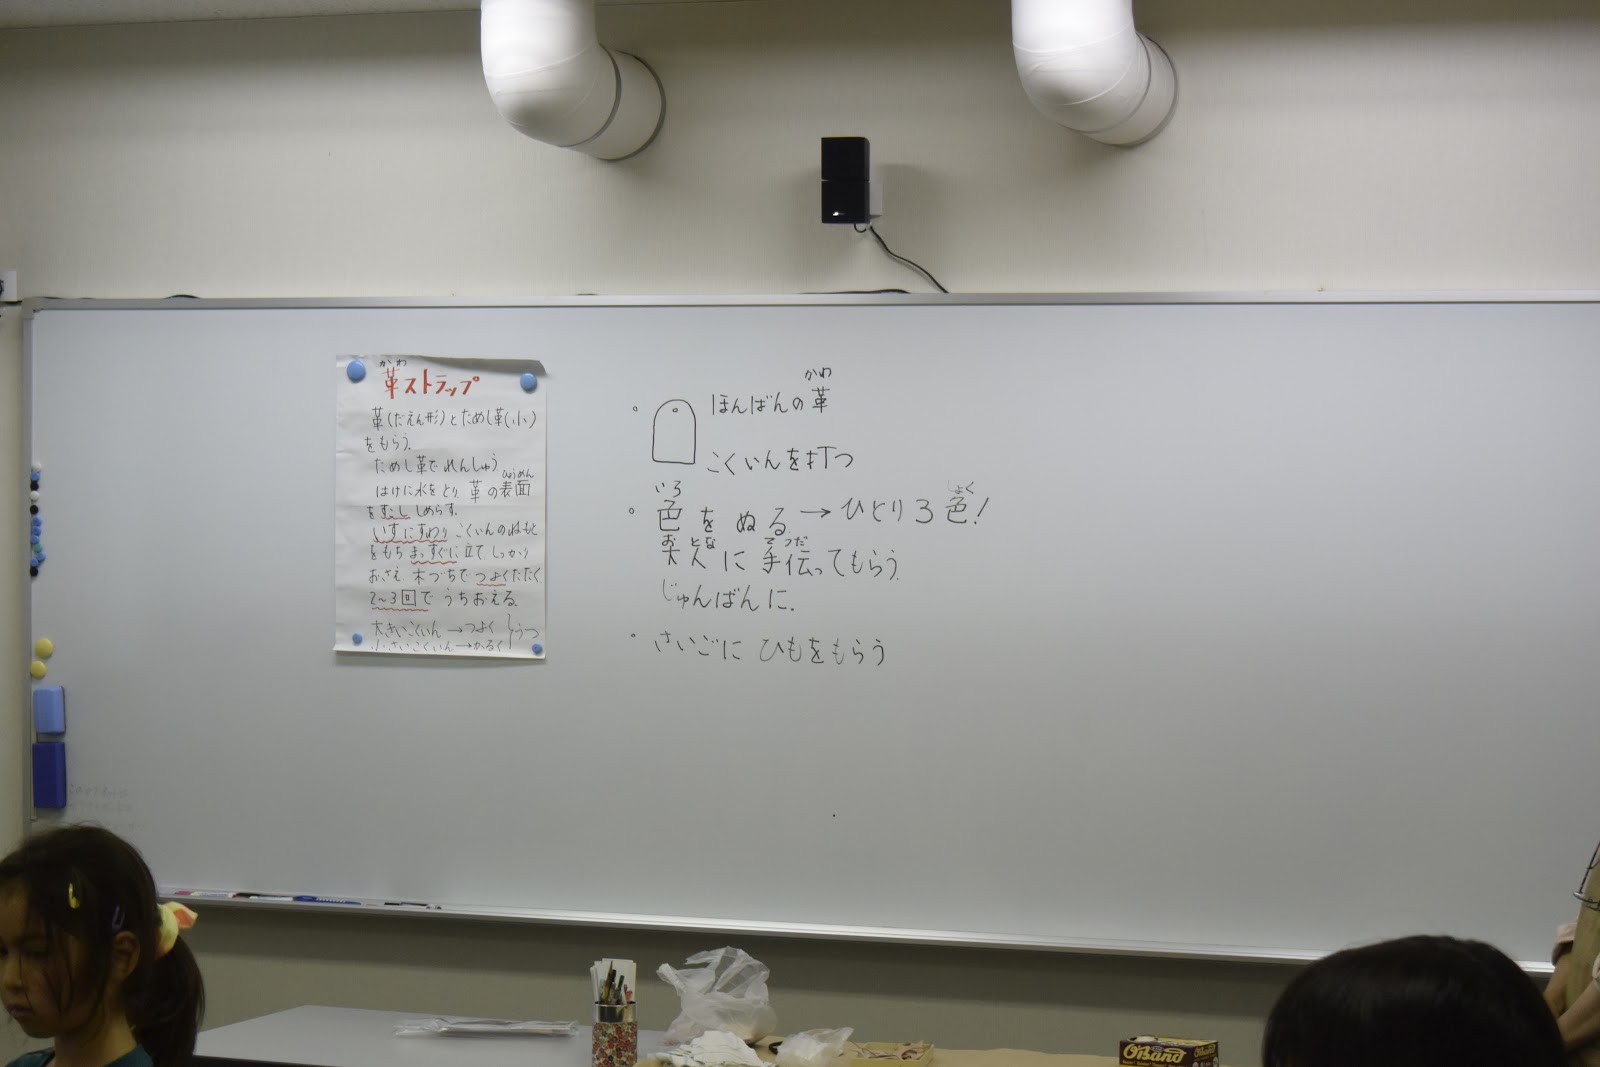 かわ
革ストラップ
革(だえん形)とためし革(小)
をもらう。
ためし革でれんしゅう
ひょうめん
はけに水をとり、革の表面
をすこししめらす。
いすにすわり こくいんのねもと
をもち まっすぐに立て しっかり
おさえ 木づちでつよくたたく
2〜3回でうちおえる。
大きいこくいん→つよく
小さいこくいん→かるく
うつ
かわ
ほんばんの革
こくいんを打つ
いろ
しょく
色をぬる→ひとり3色!
おとな
てつだ
大人に手伝ってもらう。
じゅんばんに。
さいごに ひもをもらう
OBand